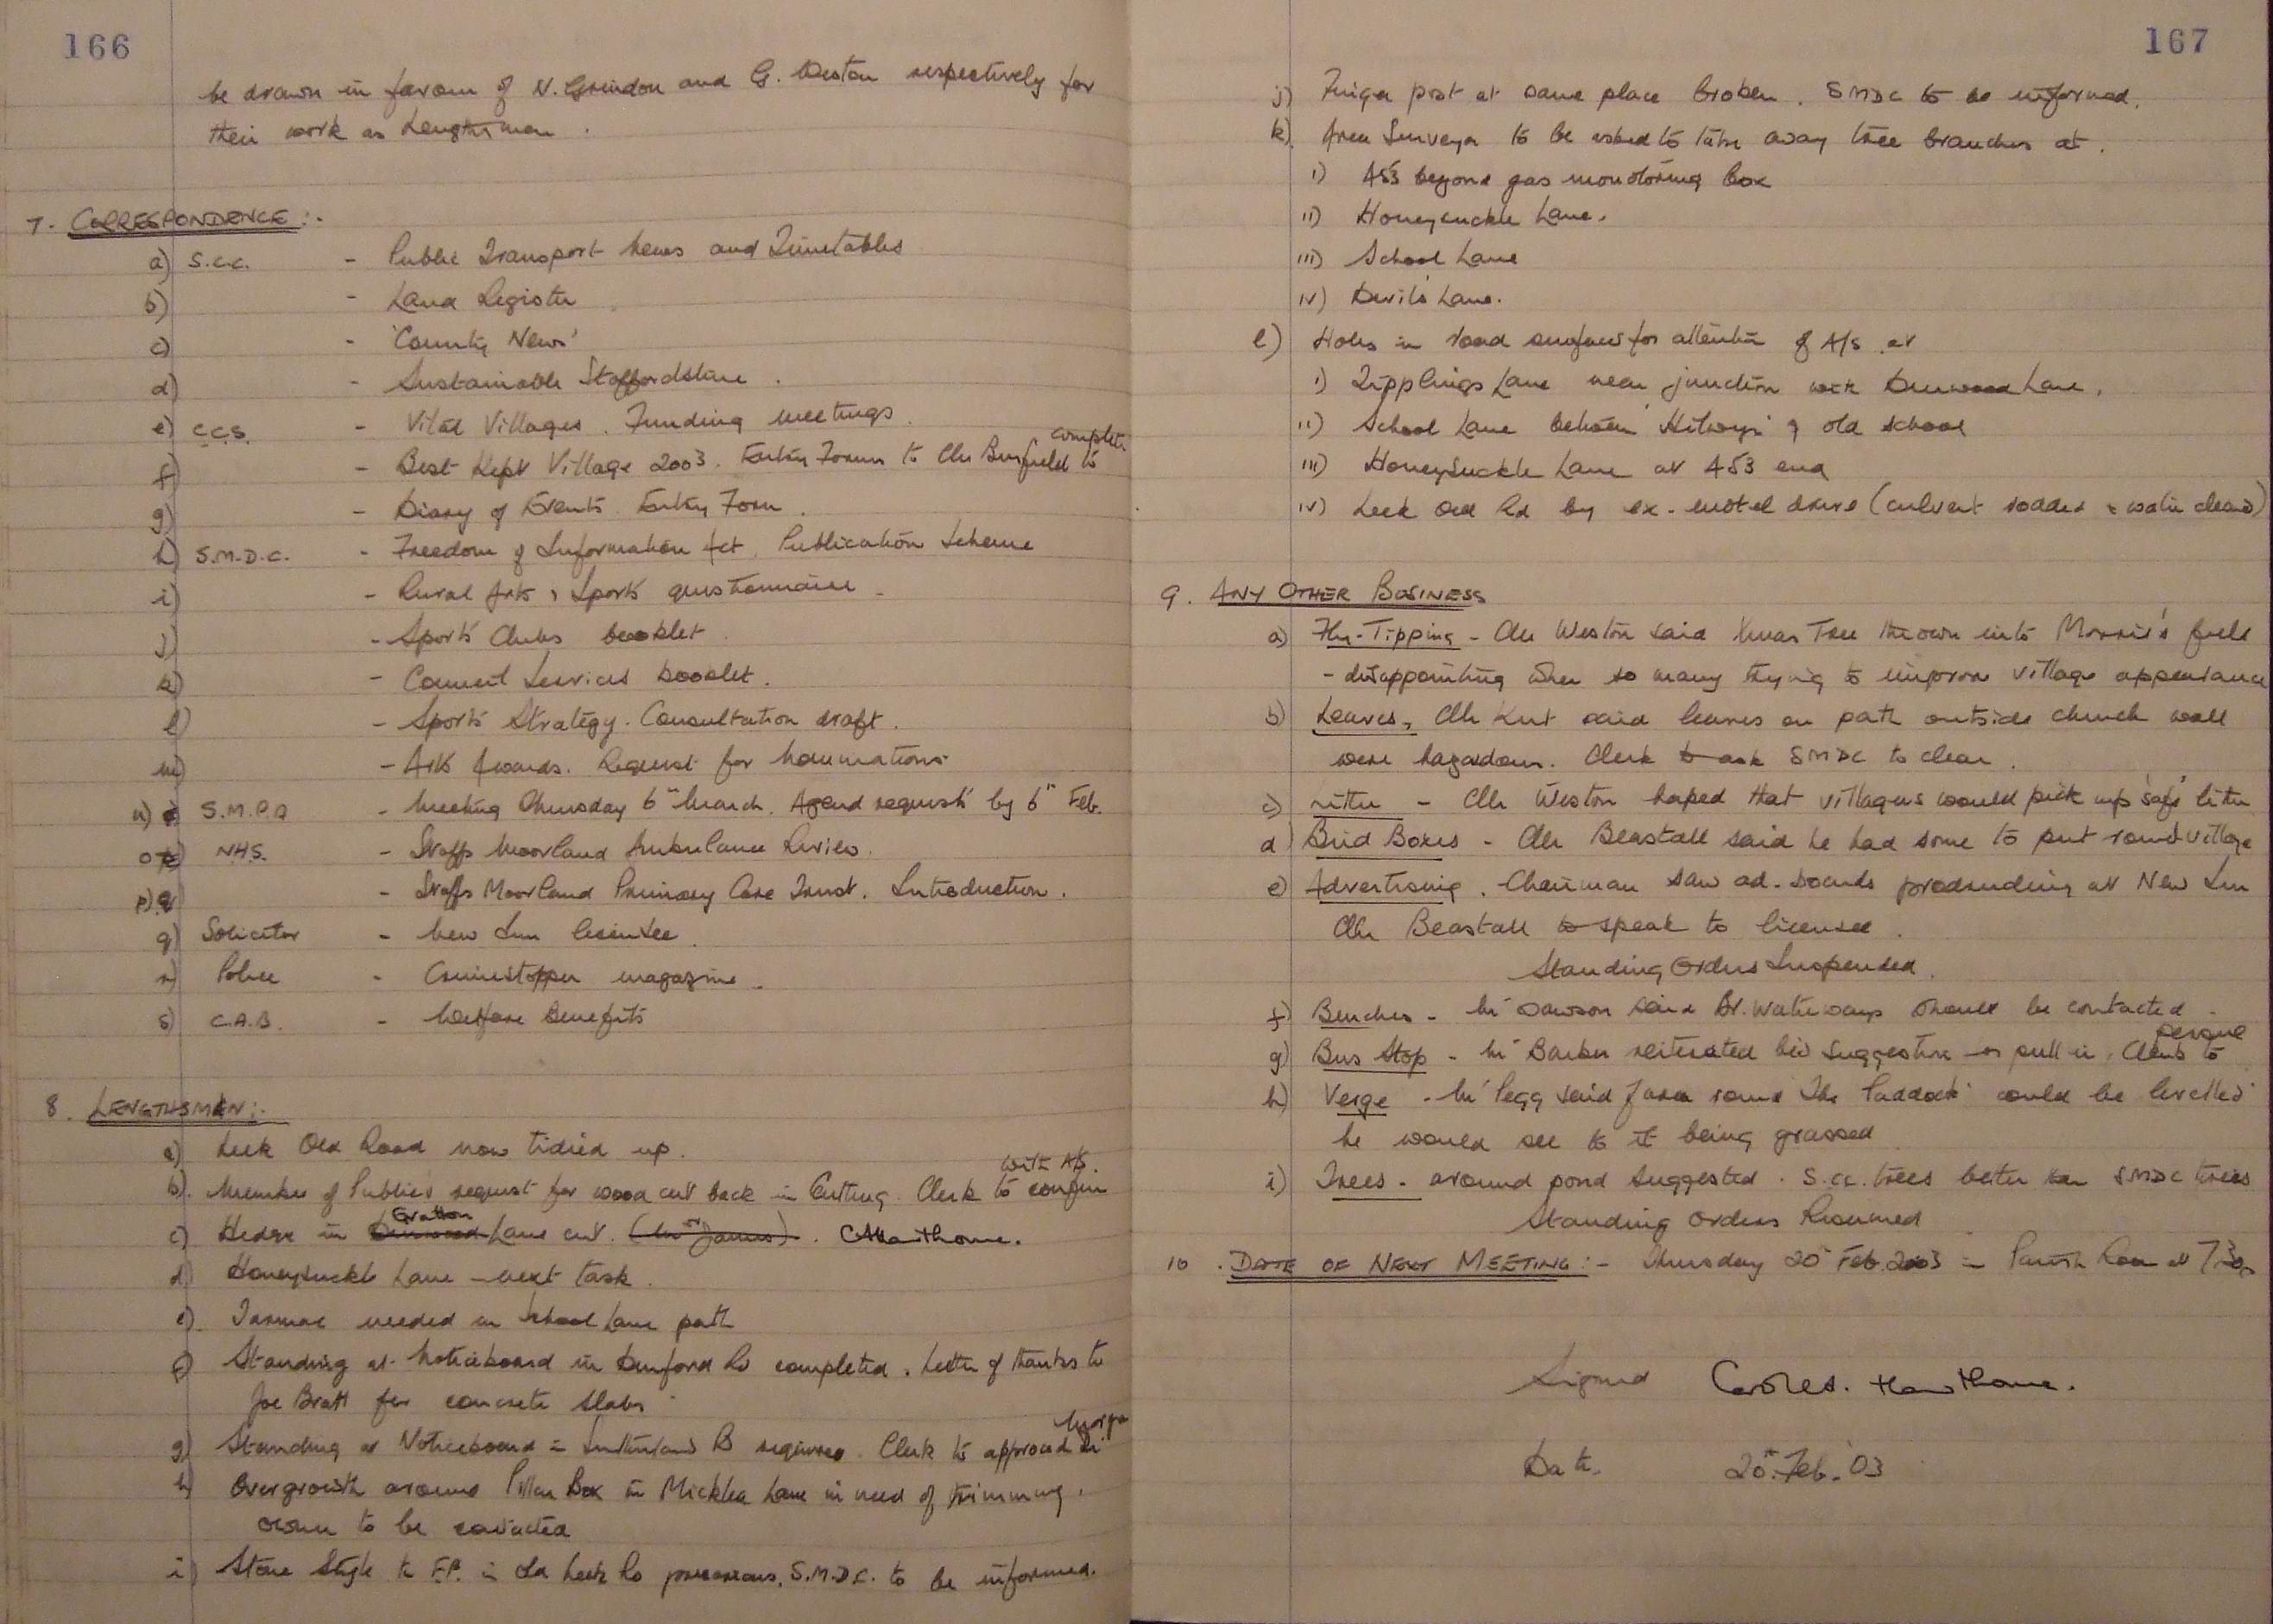 166
be drawn in favour of N. Grindon and G. Weston respectively for
their work as Lengthsmen.
7. CORRESPONDENCE:-
a) S.C.C. - Public Transport News and Timetables
b) - Land Register
c) - 'County News'
d) - Sustainable Staffordshire.
e) C.C.S. - Vital Villages. Funding meetings.
complete
f) - Best Kept Village 2003. Entry Form to Cllr Burfield to
g) - Diary of Events Entry Form.
h) S.M.D.C. - Freedom of Information Act. Publication Scheme
i) - Rural Arts & Sports questionnaire -
j) - Sports Clubs booklet
k) - Council Services booklet.
l) - Sports Strategy. Consultation draft.
m) - Arts Awards. Request for Nominations
n) S.M.P.A - Meeting Thursday 6th March. Agend requests by 6th Feb.
o) NHS. - Staffs Moorland Ambulance Review.
p) - Staffs Moorland Primary Care Trust. Introduction.
q) Solicitor - New Inn licensee.
r) Police - Crimestopper magazine.
s) C.A.B. - Welfare Benefits
8. LENGTHSMEN:-
a) Leek Old Road now tidied up.
with A/S.
b) Member of Public's request for wood cut back in Cutting. Clerk to confirm
Gratton
c) Hedge in Denwood Lane cut. (Mr James). CAHawthorne.
d) Honeysuckle Lane - next task.
e) Tarmac needed in School Lane path
f) Standing at Noticeboard in Dunford Rd completed. Letter of thanks to
Joe Bratt for concrete slabs
Morgan
g) Standing at Noticeboard in Rd required. Clerk to approach Mr
h) Overgrowth around Pillar Box in Micklea Lane in need of trimming.
owner to be contacted
i) Stone Style to F.P. in Old Leek Rd precarious. S.M.D.C. to be informed.
167
j) Finger post at same place broken. SMDC to be informed.
k) Area Surveyor to be asked to take away tree branches at.
i) A53 beyond gas monotoring box
ii) Honeysuckle Lane.
iii) School Lane
iv) Devil's Lane.
l) Holes in road surfaces for attention of A/S at
i) Tipplings Lane near junction with Denwood Lane.
ii) School Lane between & old school
iii) Honeysuckle Lane at A53 end
iv) Leek Old Rd by ex-motel drive (culvert rodded & water cleared)
9. ANY OTHER BUSINESS
a) Fly-Tipping - Cllr Weston said Xmas Tree thrown into Morris's field
- disappointing when so many trying to improve village appearance
b) Leaves, Cllr Kent said leaves on path outside church wall
were hazardous. Clerk to ask SMDC to clear.
c) Litter - Cllr Weston hoped that villagers would pick up 'safe' litter
d) Bird Boxes - Cllr Beastall said he had some to put round village
e) Advertising. Chairman saw ad-boards protruding at New Inn
Cllr Beastall to speak to licensee.
Standing Orders Suspended.
f) Benches - Mr Dawson said Br. Waterways should be contacted.
pursue
g) Bus Stop - Mr Barker reiterated his suggestion on pull in. Clerk to
h) Verge - Mr Pegg said if area round 'The Paddock' could be levelled
he would see to it being grassed
i) Trees - around pond suggested. S.CC. trees better than SMDC trees
Standing Orders Resumed
10. DATE OF NEXT MEETING:- Thursday 20th Feb. 2003 in Parish Room at 7.30pm
Signed Carole A. Hawthorne.
Date. 20th Feb. '03